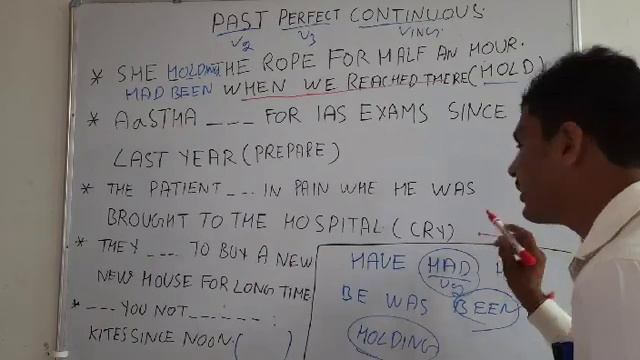 PAST PERFECT CONTINUOUS.
V2 V3 VING
* SHE HOLDING THE ROPE FOR HALF AN HOUR.
HAD BEEN WHEN WE REACHED THERE (HOLD)
* AaSTHA _ _ _ FOR IAS EXAMS SINCE
LAST YEAR (PREPARE)
* THE PATIENT _ _ _ IN PAIN WHE HE WAS
BROUGHT TO THE HOSPITAL (CRY)
* THEY _ _ _ _ TO BUY A NEW
NEW HOUSE FOR LONG TIME
* _ _ _ YOU NOT _ _ _ _ _ _
KITES SINCE NOON. ( )
HAVE HAD H
V2
BE WAS BEEN
HOLDING